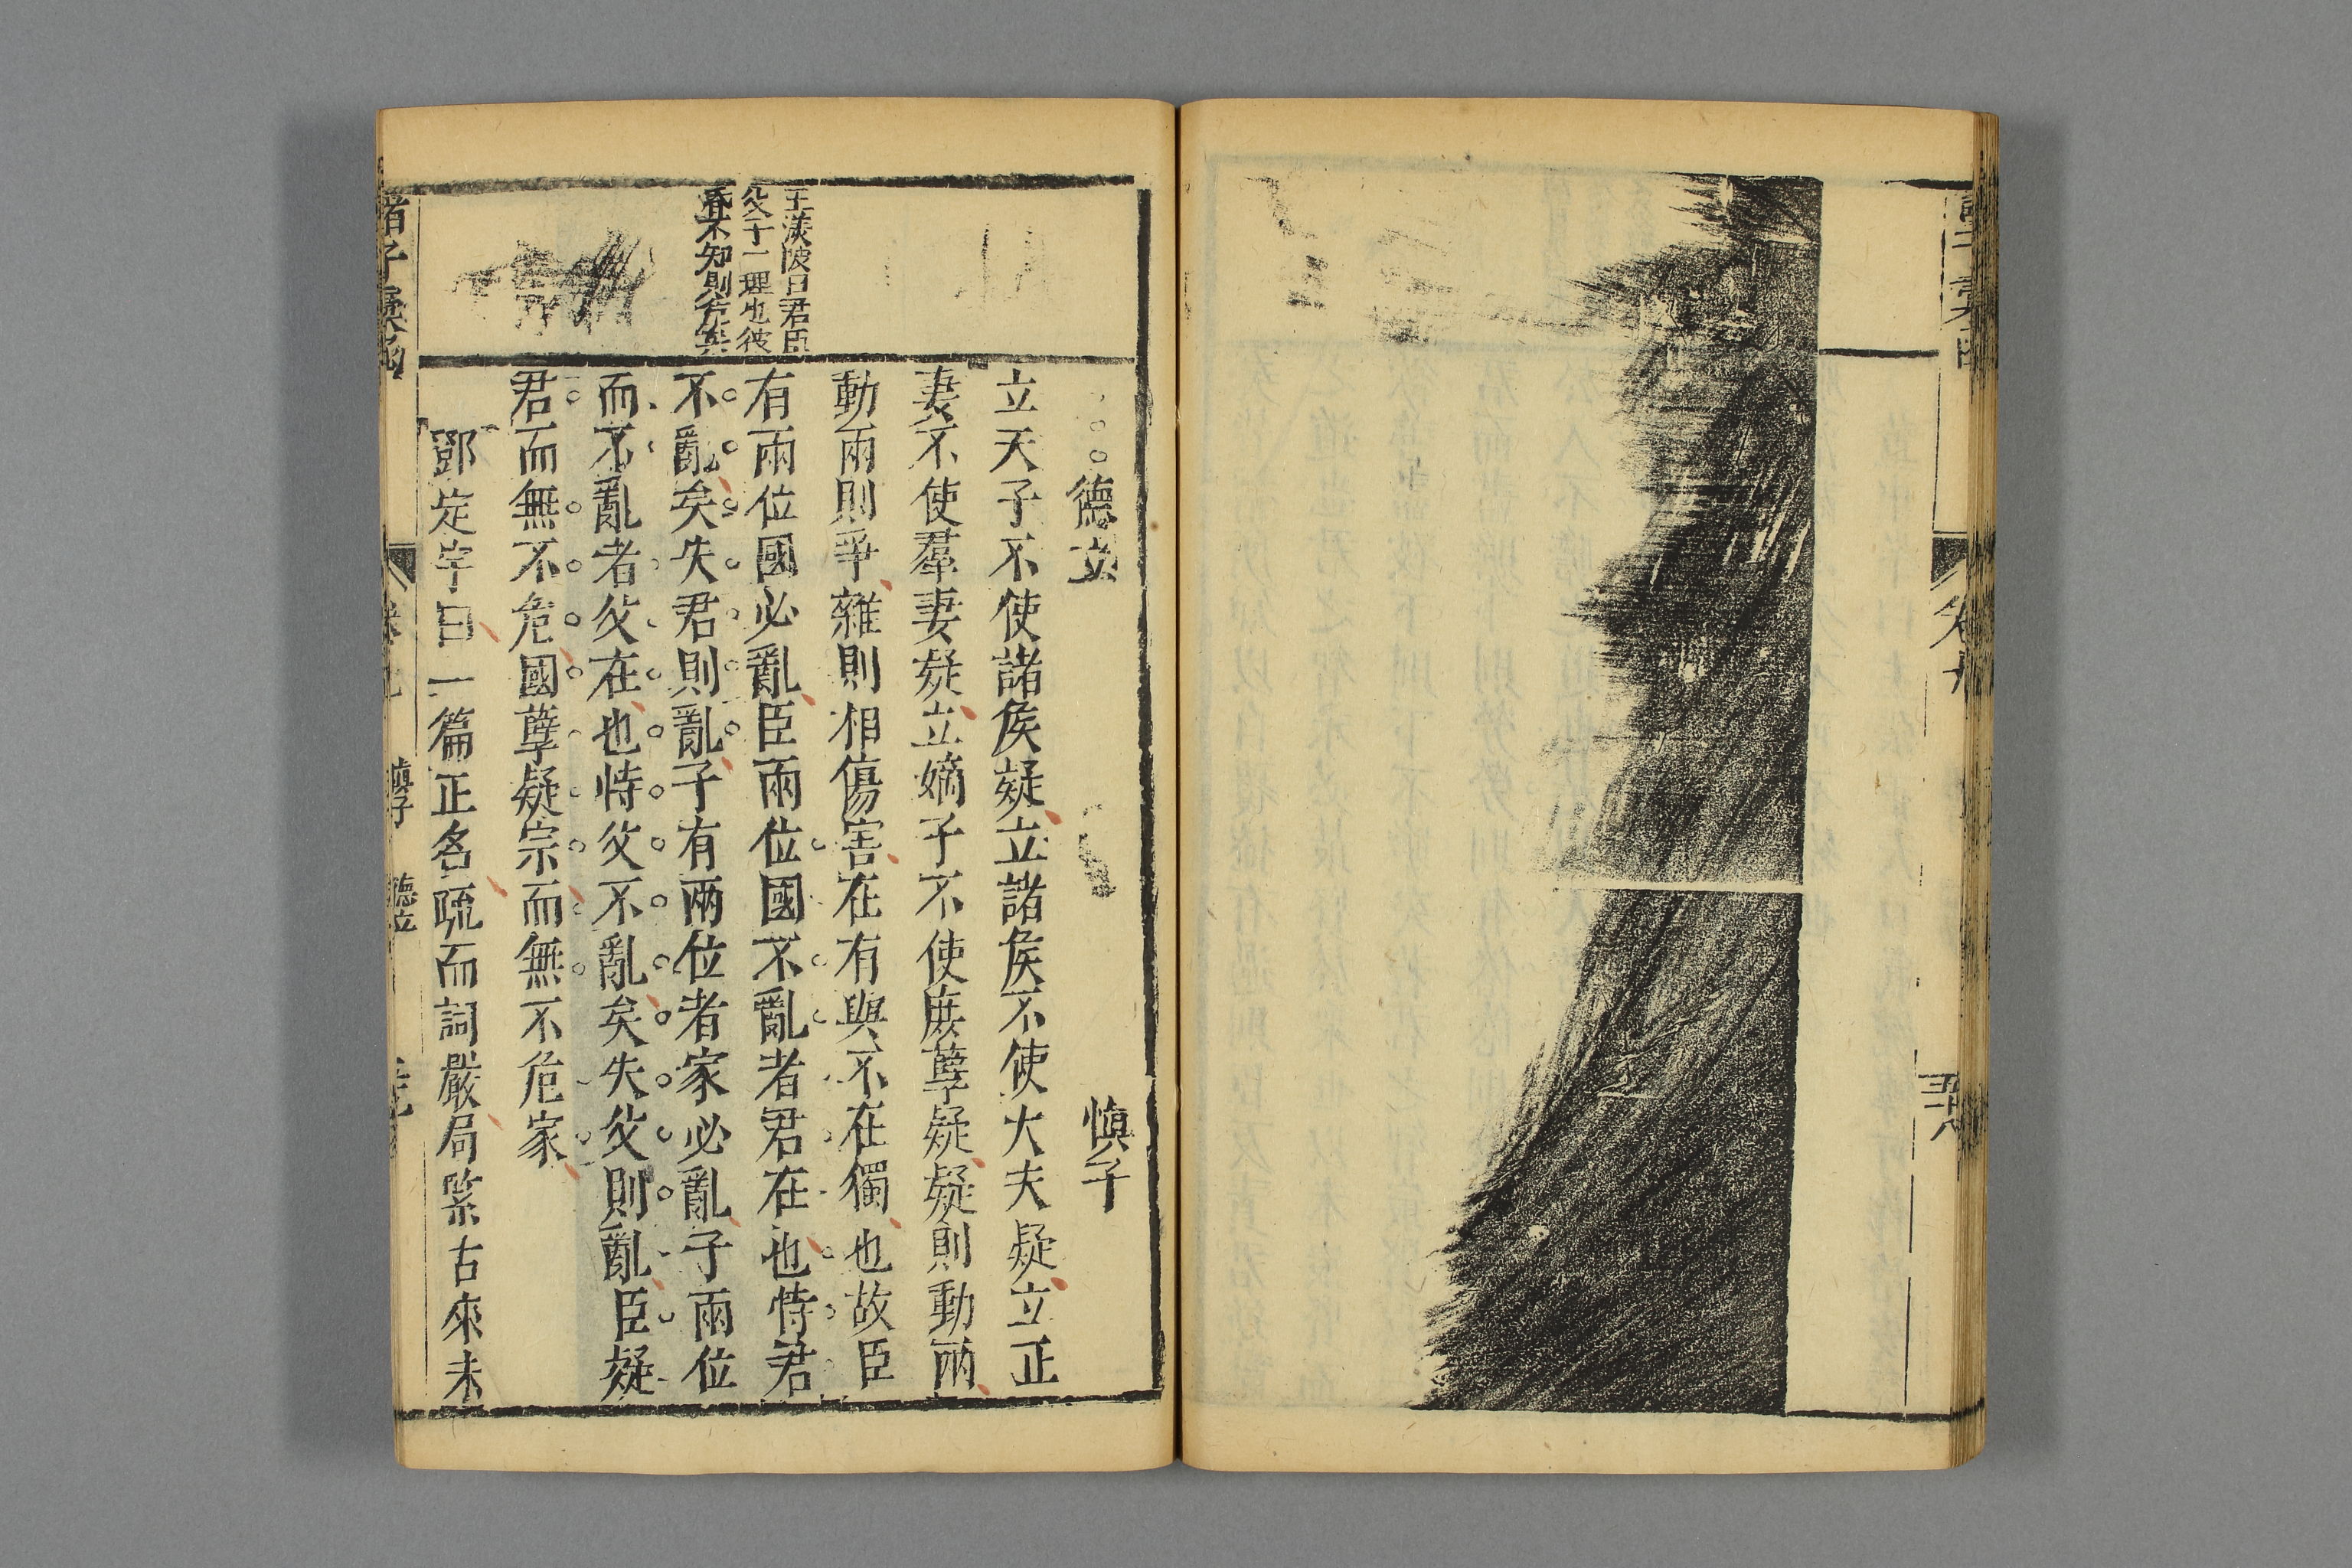 德立
慎子
立天子不使諸侯疑立諸侯不使大夫疑立正
妻不使羣妻疑立嫡子不使庻孽疑疑則動兩
動兩則爭雜則相傷害在有與不在獨也故臣
有兩位國必亂臣兩位國不亂者君在也恃君
不亂矣失君則亂子有兩位者家必亂子兩位
而不亂者父在也恃父不亂矣失父則亂臣疑
君而無不危國孽疑宗而無不危家
鄧定宇曰一篇正名疏而詞嚴局緊古來未
王渼陂曰君臣
父子一理也彼
昏不知則危矣
諸子彙函
慎子
德立
五十八